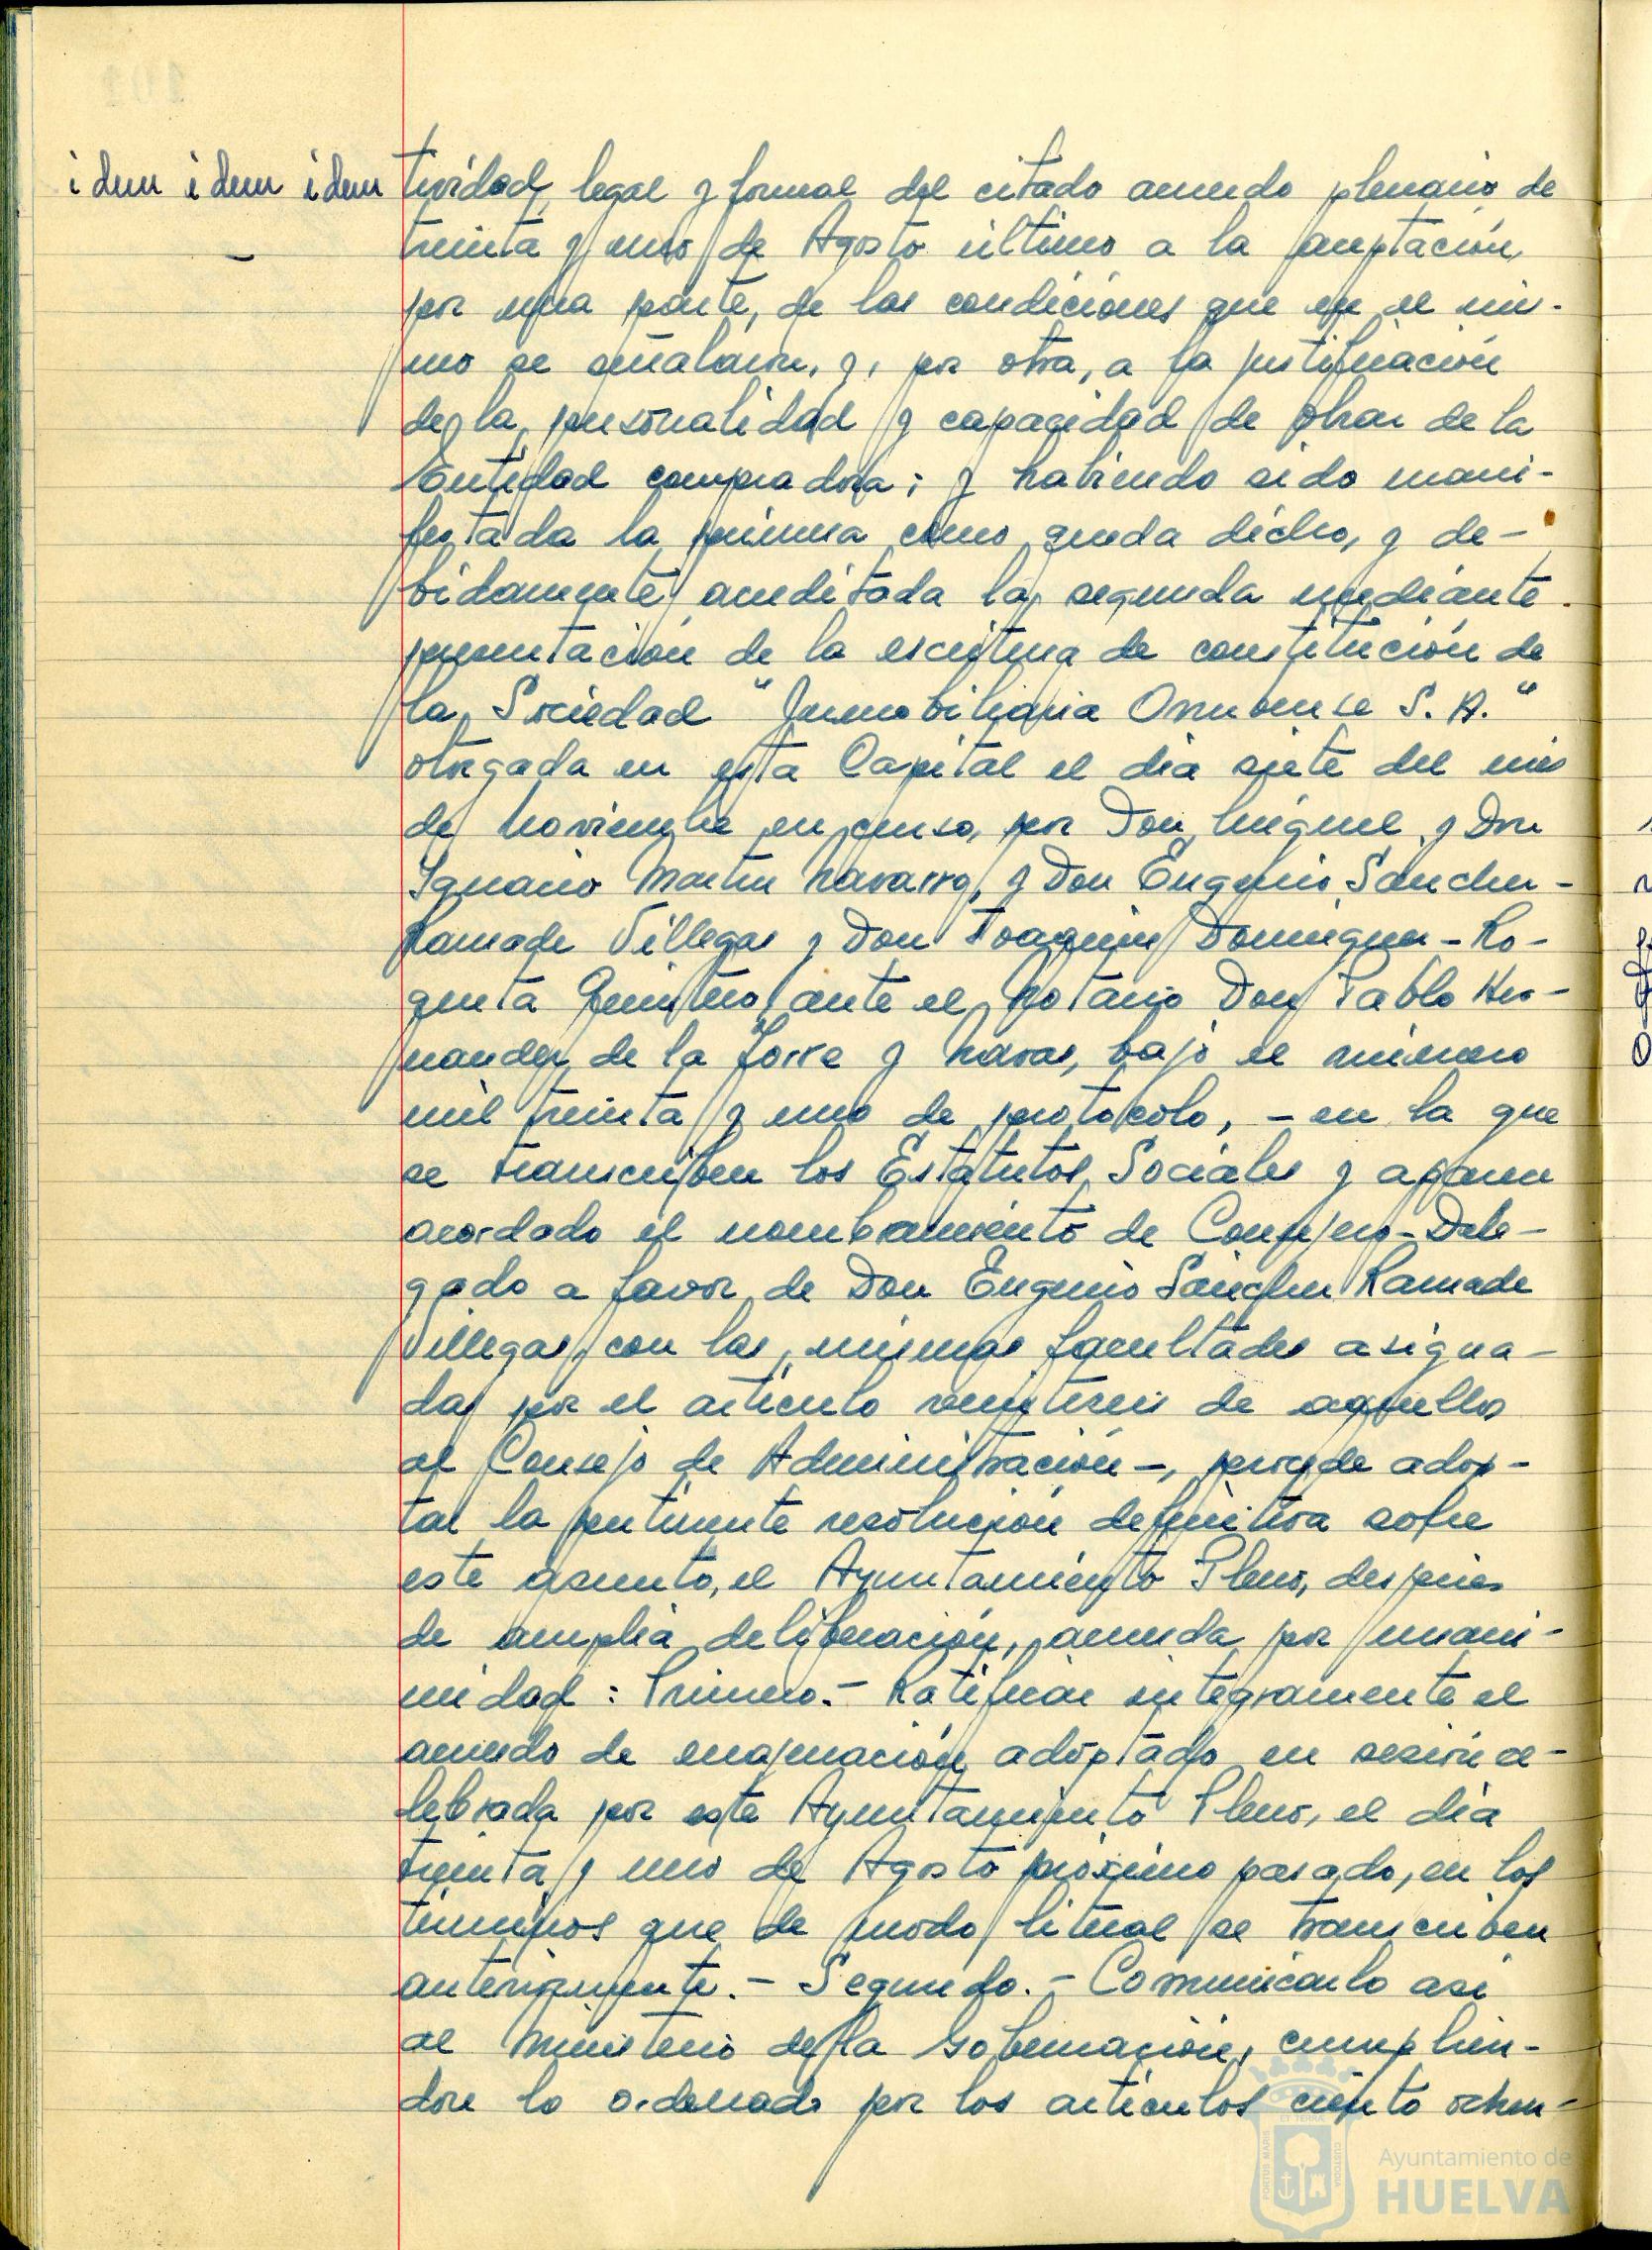 idem idem idem
tividad legal y formal del citado acuerdo plenario de
treinta y uno de Agosto último a la aceptación,
por una parte, de las condiciones que en el mis-
mo se señalaron, y, por otra, a la justificación
de la personalidad y capacidad de obrar de la
Entidad compradora; y habiendo sido mani-
festada la primera como queda dicho, y de-
bidamente acreditada la segunda mediante
presentación de la escritura de constitución de
la Sociedad "Inmobiliaria Onubense S.A."
otorgada en esta Capital el día siete del mes
de Noviembre en curso, por Don Miguel y Don
Ignacio Martin Navarro, y Don Eugenio Sanchez-
Ramade Villegas y Don Joaquin Dominguez-Ro-
queta Quintero, ante el Notario Don Pablo Her-
nandez de la Torre y Navas, bajo el número
mil treinta y uno de protocolo, - en la que
se transcriben los Estatutos Sociales y aparece
acordado el nombramiento de Consejero-Dele-
gado a favor de Don Eugenio Sánchez Ramade
Villegas, con las mismas facultades asigna-
das por el artículo veintiseis de aquellos
al Consejo de Administración -, procede adop-
tar la pertinente resolución definitiva sobre
este asunto, el Ayuntamiento Pleno, después
de amplia deliberación, acuerda por unani-
midad: Primero.- Ratificar íntegramente el
acuerdo de enajenación adoptado en sesión ce-
lebrada por este Ayuntamiento Pleno, el día
treinta y uno de Agosto próximo pasado, en los
términos que de modo literal se transcriben
anteriormente.- Segundo.- Comunicarlo así
al Ministerio de la Gobernación, cumplién-
dose lo ordenado por los artículos ciento ochen-
PORTUS MARIS ET TERRÆ CUSTODIA
Ayuntamiento de
HUELVA